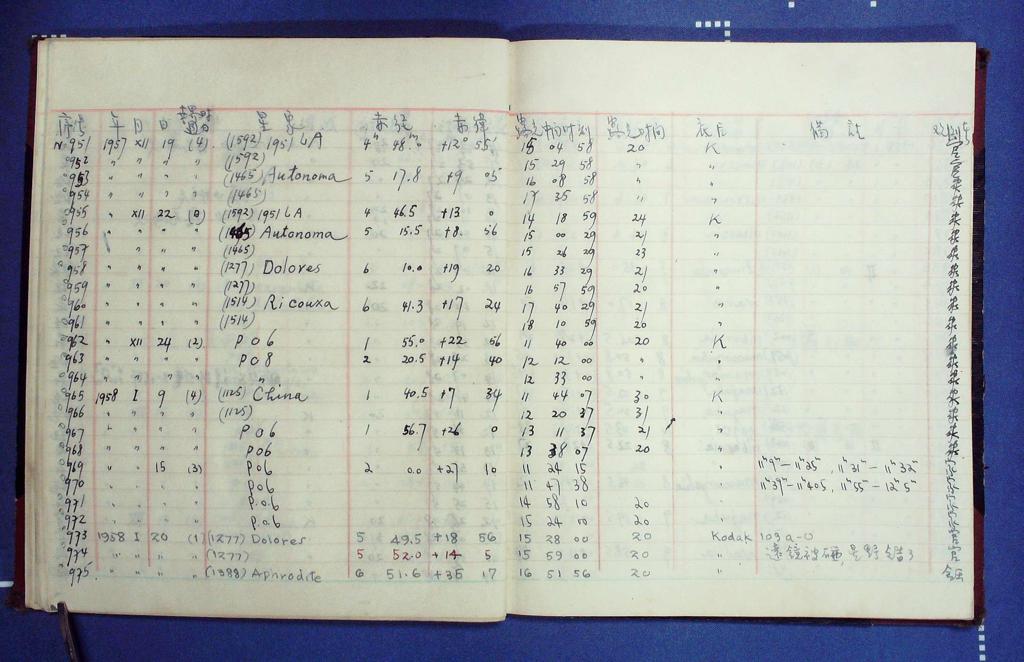 序号 年 月 日 星象 赤经 赤纬 露光中间时刻 露光时间 底片 备註
N°951 1957 XII 19 (4) (1592) 1951 LA 4h 48.m0 +12° 55' 15 04 58 20 K
°952 " " " " (1592) 15 29 58 " "
°953 " " " " (1465) Autonoma 5 17.8 +9 05 16 08 58 " "
°954 " " " " (1465) 17 35 58 " "
°955 " XII 22 (9) (1592) 1951 LA 4 46.5 +13 0 14 18 59 24 K
°956 " " " " (1465) Autonoma 5 15.5 +8 56 15 00 29 21 "
°957 " " " " (1465) 15 26 29 23 "
°958 " " " " (1277) Dolores 6 10.0 +19 20 16 33 29 21 "
°959 " " " " (1277) 16 57 59 20 "
°960 " " " " (1514) Ricouxa 6 41.3 +17 24 17 40 29 21 "
°961 " " " " (1514) 18 10 59 20 "
°962 " XII 24 (2) P06 1 55.0 +22 56 11 40 00 20 K
°963 " " " " P08 2 20.5 +14 40 12 12 00 " "
°964 " " " " " 12 33 00 " "
°965 1958 I 9 (4) (1125) China 1 40.5 +7 34 11 44 07 30 K
°966 " " " " (1125) 12 20 37 31 "
°967 " " " " P06 1 56.7 +26 0 13 11 37 21 "
°968 " " " " P06 13 38 07 20 "
°969 " " 15 (3) P06 2 0.0 +27 10 11 24 15 11h9m–11h25m, 11h31m–11h32m
°970 " " " " P06 11 47 38 11h39m–11h40.5, 11h55m–12h5m
°971 " " " " P06 14 58 10 20 "
°972 " " " " P06 15 24 10 20 "
°973 1958 I 20 (1) (1277) Dolores 5 49.5 +18 56 15 28 00 20 Kodak 103a-O
°974 " " " " (1277) 5 52.0 +14 5 15 59 00 20 " 远镜被砸,星野错了
°975 " " " " (1388) Aphrodite 6 51.6 +35 17 16 51 56 20 "